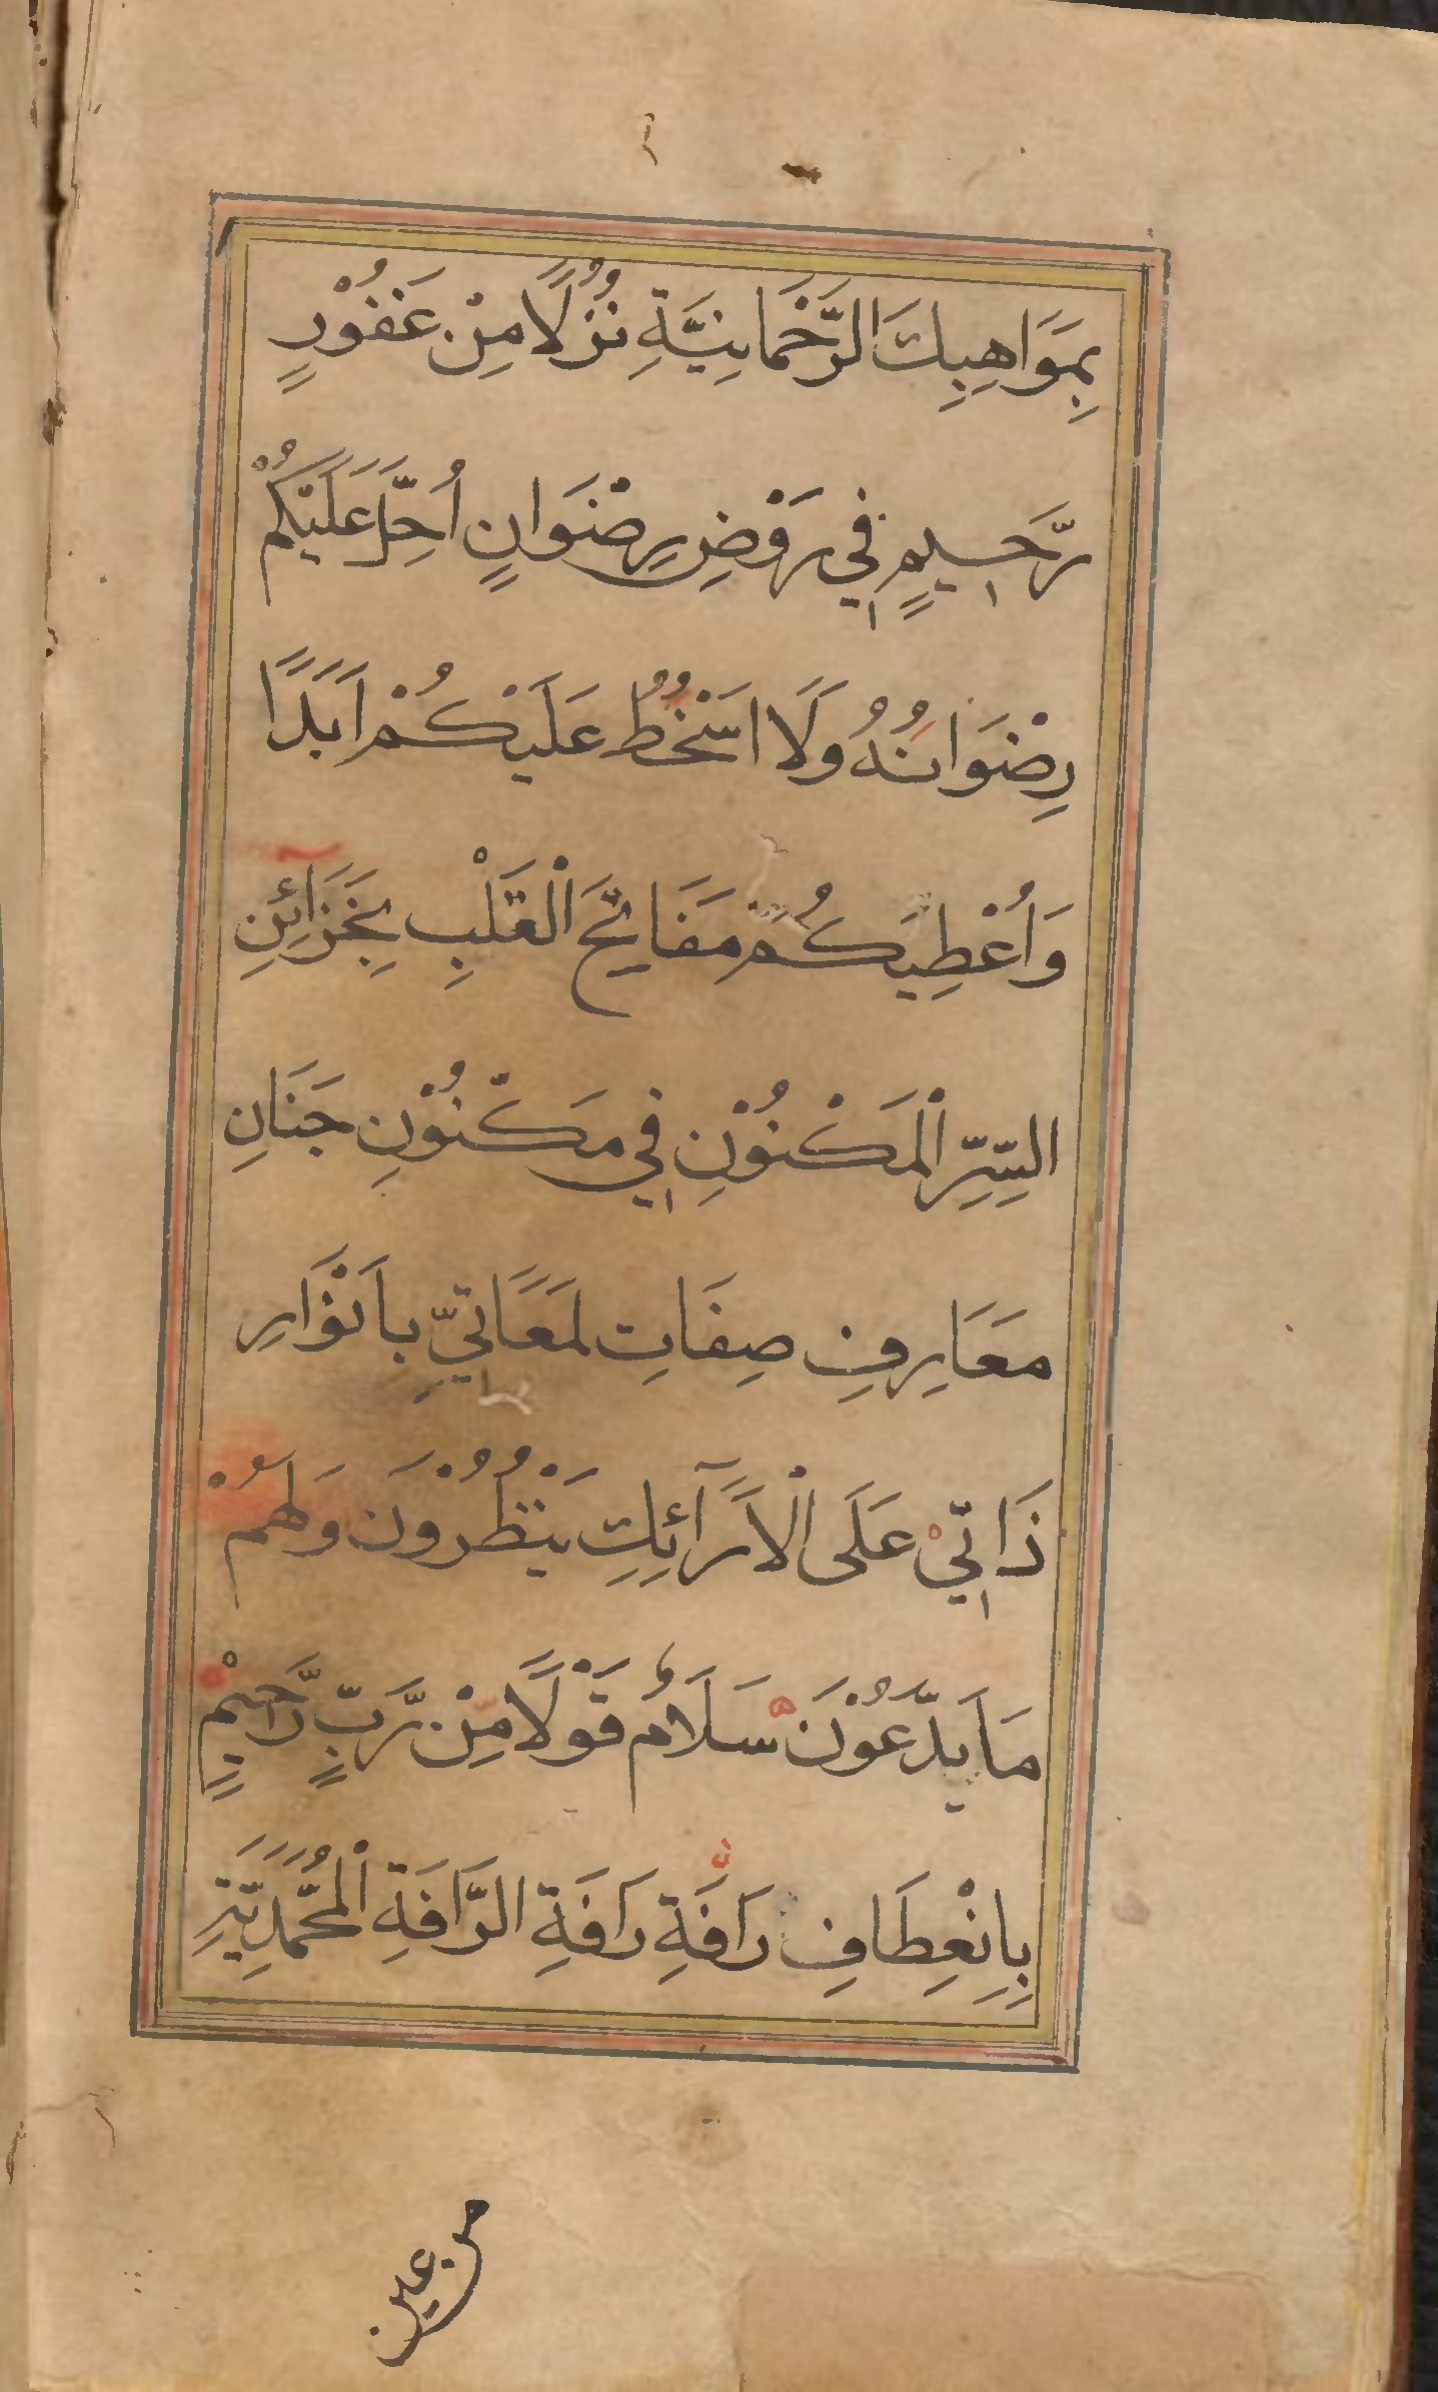 بِمَوَاهِبِكَ الرَّحْمَانِيَّةِ نُزُلًا مِنْ غَفُوْرٍ
رَّحِيمٍ فِي رَوْضِ رِضْوَانٍ أُحِلَّ عَلَيْكُمْ
رِضْوَانُهُ وَلَا اَسْخُطُ عَلَيْكُمْ اَبَدًا
وَأُعْطِيَكُمْ مَفَاتِحَ الْقَلْبِ بِخَزَائِنِ
السِّرِّ الْمَكْنُوْنِ فِي مَكْنُوْنِ جَنَانِ
مَعَارِفِ صِفَاتِ لمَعَانِيِّ بِاَنْوَارِ
ذَاتِيْ عَلَى الْاَرَآئِكِ يَنْظُرُوْنَ وَلَهُمْ
مَا يَدَّعُوْنَ سَلَامٌ قَوْلًا مِنْ رَّبٍّ رَّحِيْمٍ
بِاِنْعِطَافِ رَافَةِ رَافَةِ الرَّافَةِ الْمُحَمَّدِيَّةِ
من عين